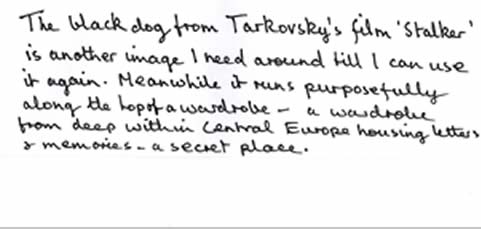 The black dog from Tarkovsky's film 'Stalker'
is another image I need around till I can use
it again. Meanwhile it runs purposefully
along the top of a wardrobe – a wardrobe
from deep within Central Europe housing letters
& memories – a secret place.